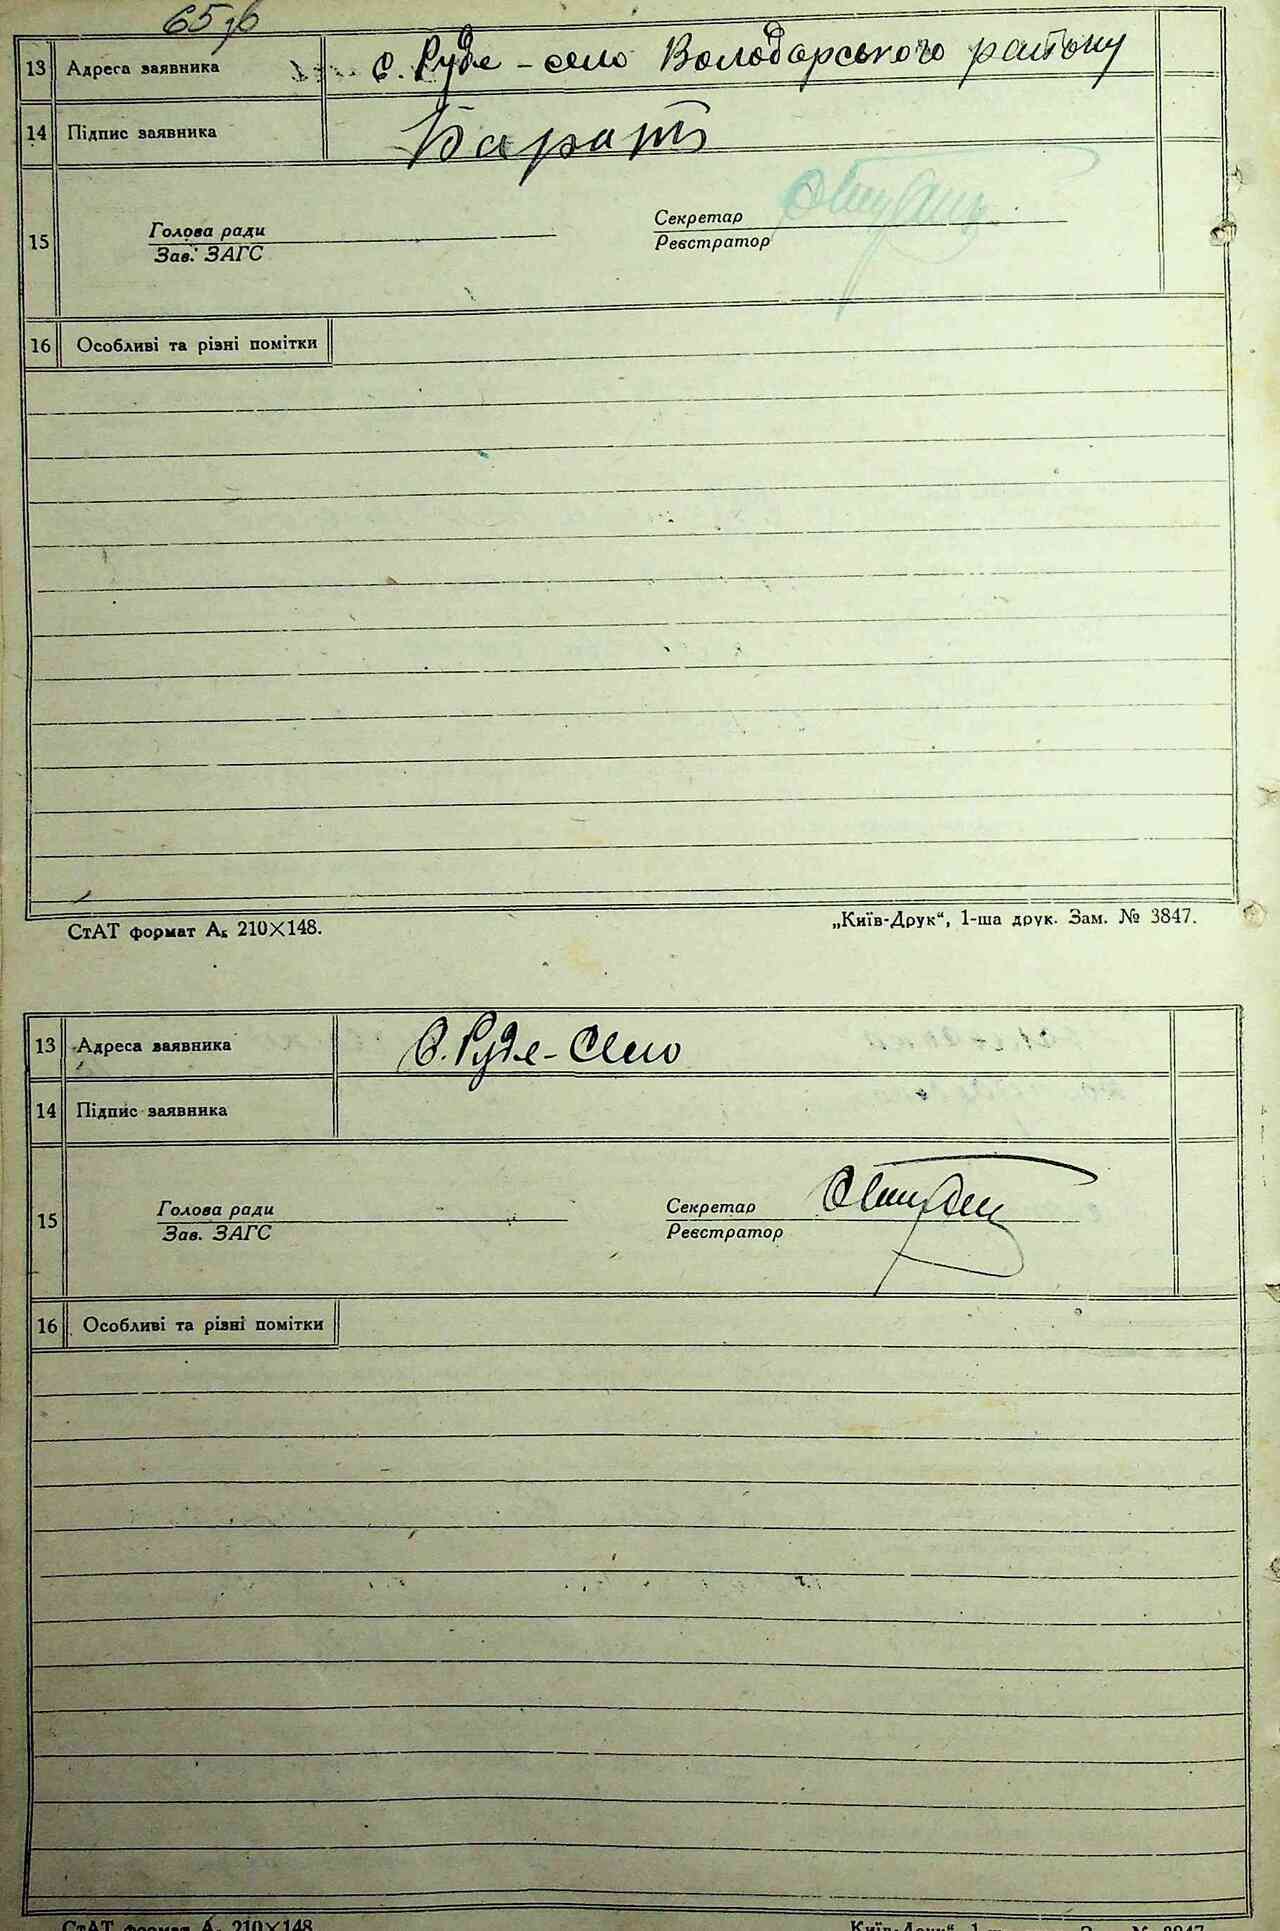 65 зв
13 Адреса заявника с. Руде-село Володарського району
14 Підпис заявника
15 Голова ради Секретар
Зав. ЗАГС Реєстратор
16 Особливі та різні помітки
СтАТ формат А₅ 210×148. „Київ-Друк“, 1-ша друк. Зам. № 3847.
13 Адреса заявника С. Руде-Село
14 Підпис заявника
15 Голова ради Секретар
Зав. ЗАГС Реєстратор
16 Особливі та різні помітки
СтАТ формат А₅ 210×148